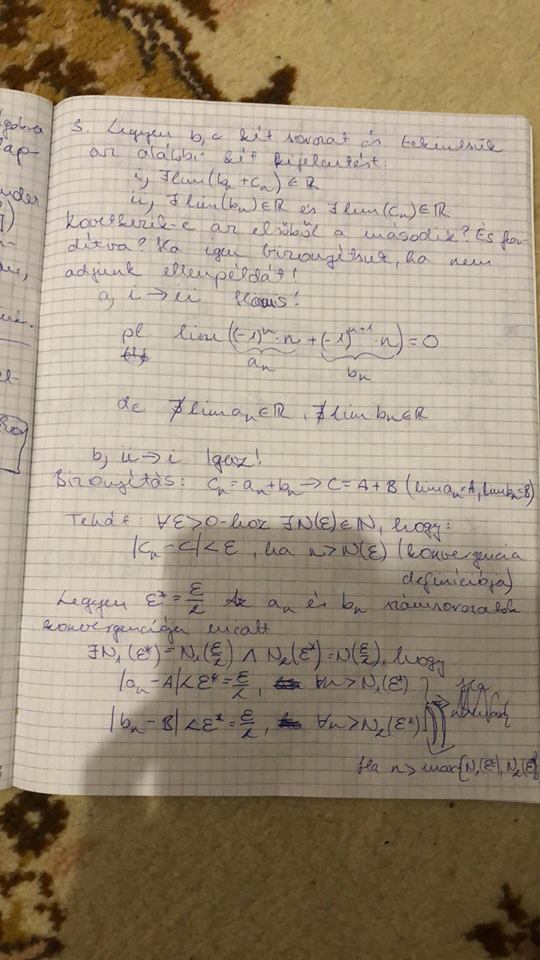 3. Legyen b, c két sorozat és tekintsük
az alábbi két kijelentést:
i, ∃ lim(bₙ + cₙ) ∈ ℝ
ii, ∃ lim(bₙ) ∈ ℝ és ∃ lim(cₙ) ∈ ℝ
Következik-e az elsőből a második? És for-
dítva? Ha igen bizonyítsuk, ha nem
adjunk ellenpéldát!
a, i → ii Hamis!
pl. lim((-1)ⁿ · n + (-1)ⁿ⁺¹ · n) = 0
aₙ bₙ
de ∄ lim aₙ ∈ ℝ, ∄ lim bₙ ∈ ℝ
b, ii → i Igaz!
Bizonyítás: cₙ = aₙ + bₙ → C = A + B (lim aₙ = A, lim bₙ = B)
Tehát: ∀ε > 0-hoz ∃N(ε) ∈ ℕ, hogy:
|cₙ - C| < ε, ha n > N(ε) (konvergencia
definíciója)
Legyen ε* = ε/2 Az aₙ és bₙ számsorozatok
konvergenciája miatt
∃N₁(ε*) = N₁(ε/2) ∧ N₂(ε*) = N(ε/2), hogy
|aₙ - A| < ε* = ε/2, ∀n > N₁(ε*)
|bₙ - B| < ε* = ε/2, ∀n > N₂(ε*)
Ha n > max{N₁(ε*), N₂(ε*)}